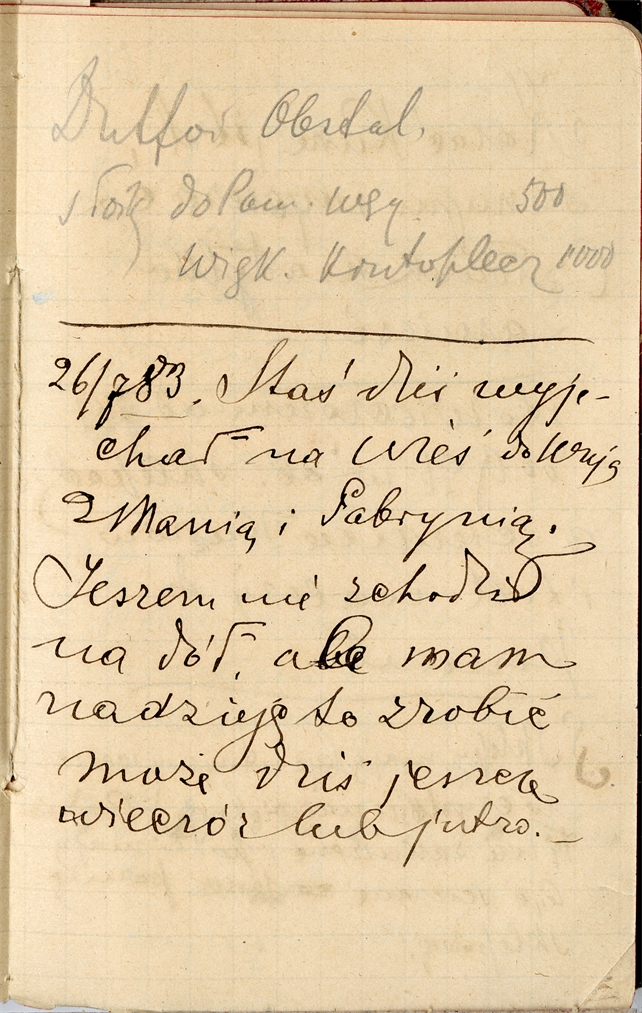 Obstal.
do Pam. Wgy 500
Wigk. Kontoplecz 1000
26/783. Staś dziś wyje-
chał na wieś do Wuja
z Manią i Gabrynią.
Jeszem nie schodził
na dół, ale mam
nadzieję to zrobić
może dziś jeszcze
wieczór lub jutro. —